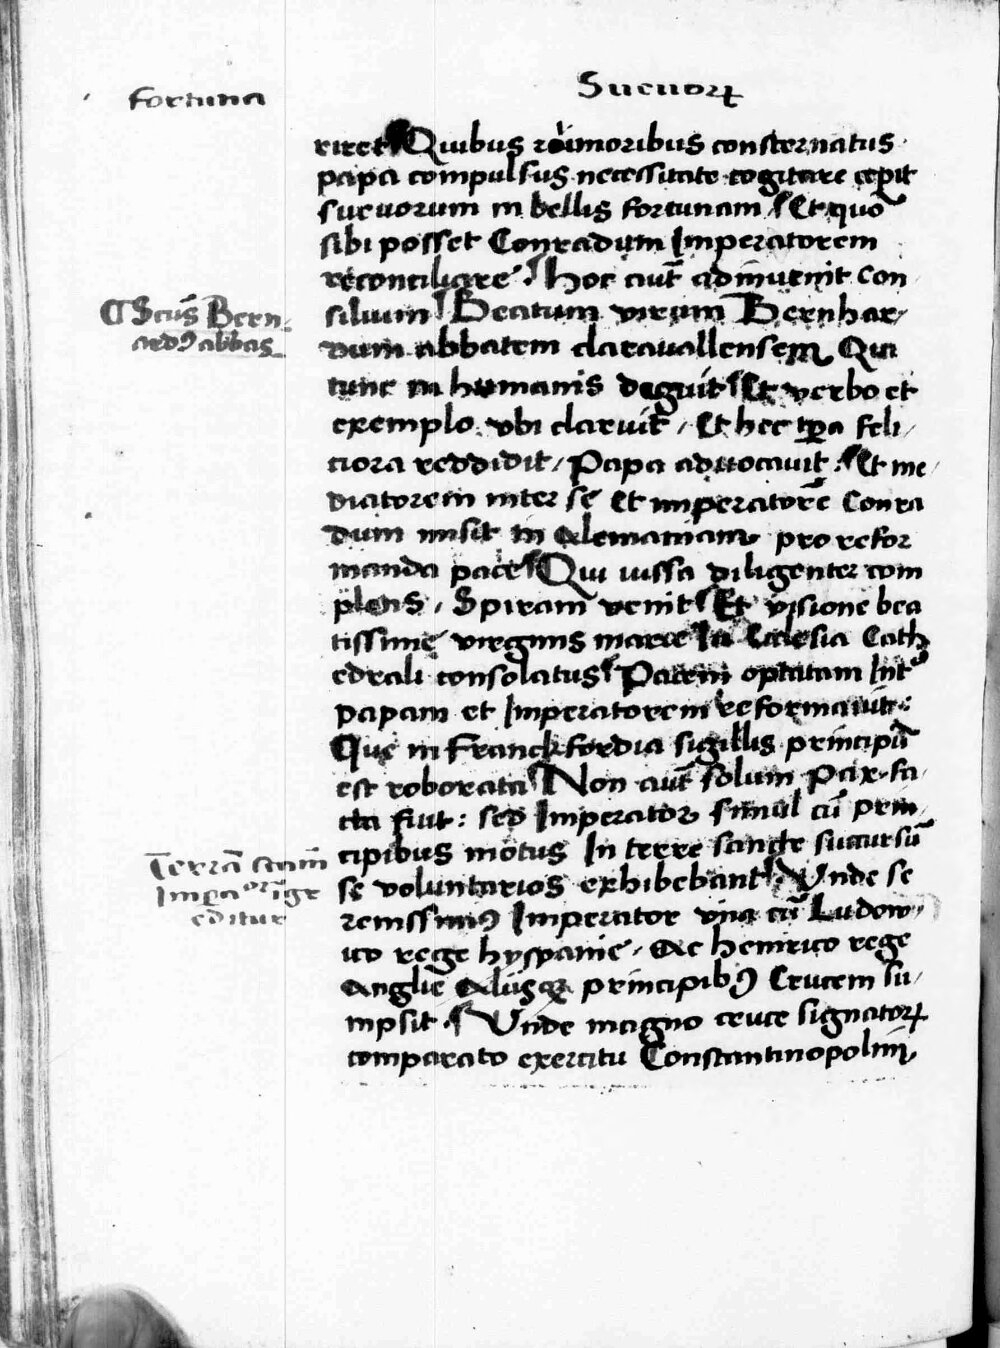 fortuna
Sueuoꝝ
riret Quibus rumoribus consternatus
papa compulsus necessitate cogitare cepit
sueuorum in bellis fortunam Et quo
sibi posset Conradum Imperatorem
reconciliare Hoc aut̄ adinuenit Con
silium Beatum virum Bernhar
dum abbatem clarauallensem Qui
tunc in humanis deguit Et verbo et
exemplo vbi claruit / Et hec tꝑa feli
ciora reddidit / Papa aduocauit : Et me
diatorem inter se Et imperatorē Conra
dum misit in Alemaniam pro refor
manda pace Qui iussa diligenter com
plens / Spiram venit Et visione bea
tissime virginis marie In Ecclesia Cath
edrali consolatus Pacem optatam Intº
papam et Imperatorem reformauit :
Que in Franckfordia sigillis principū
est roborata Non aut̄ solum Pax fa
cta fuit : sed Imperator simul cū prin
cipibus motus In terre sancte succursū
se voluntarios exhibebant Unde se
renissimꝰ Imperator vna cū Ludow
ico rege hyspanie / Ac henrico rege
Anglie Aliisqꝫ principibꝰ Crucem su
mpsit Unde magno cruce signatoꝝ
comparato exercitu Constantinopolim
Scūs Bern
ardꝰ abbas
Terrā scām
Impaor īgr
editur